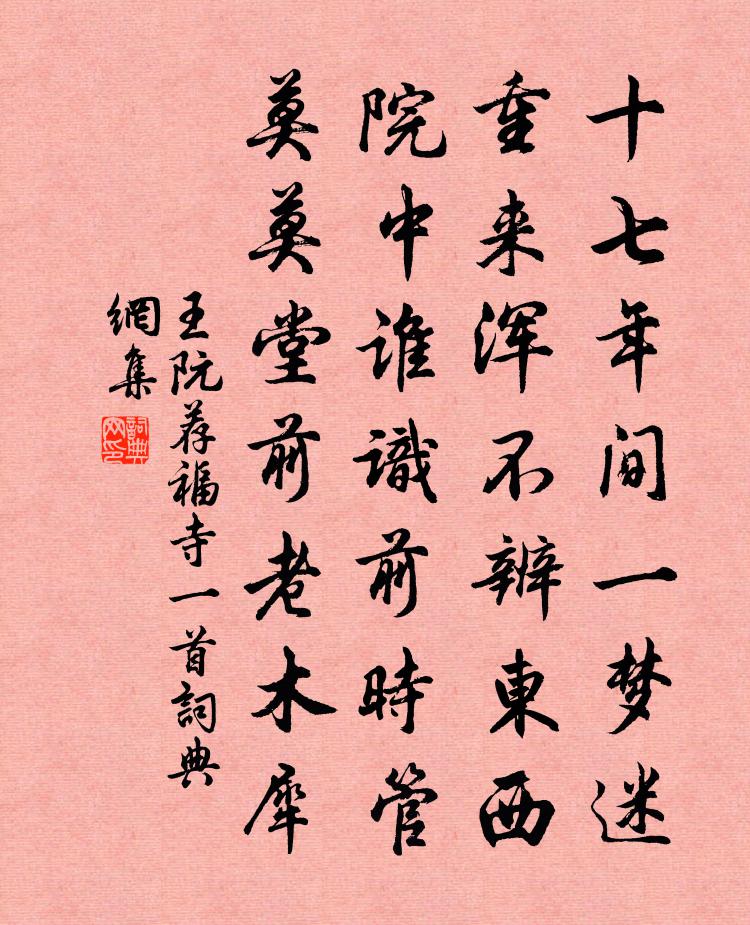 十七年间一梦迷
重来浑不辨東西
院中谁識前時管
莫莫堂前老木犀
王阮荐福寺一首詞典
網集
詞典網印